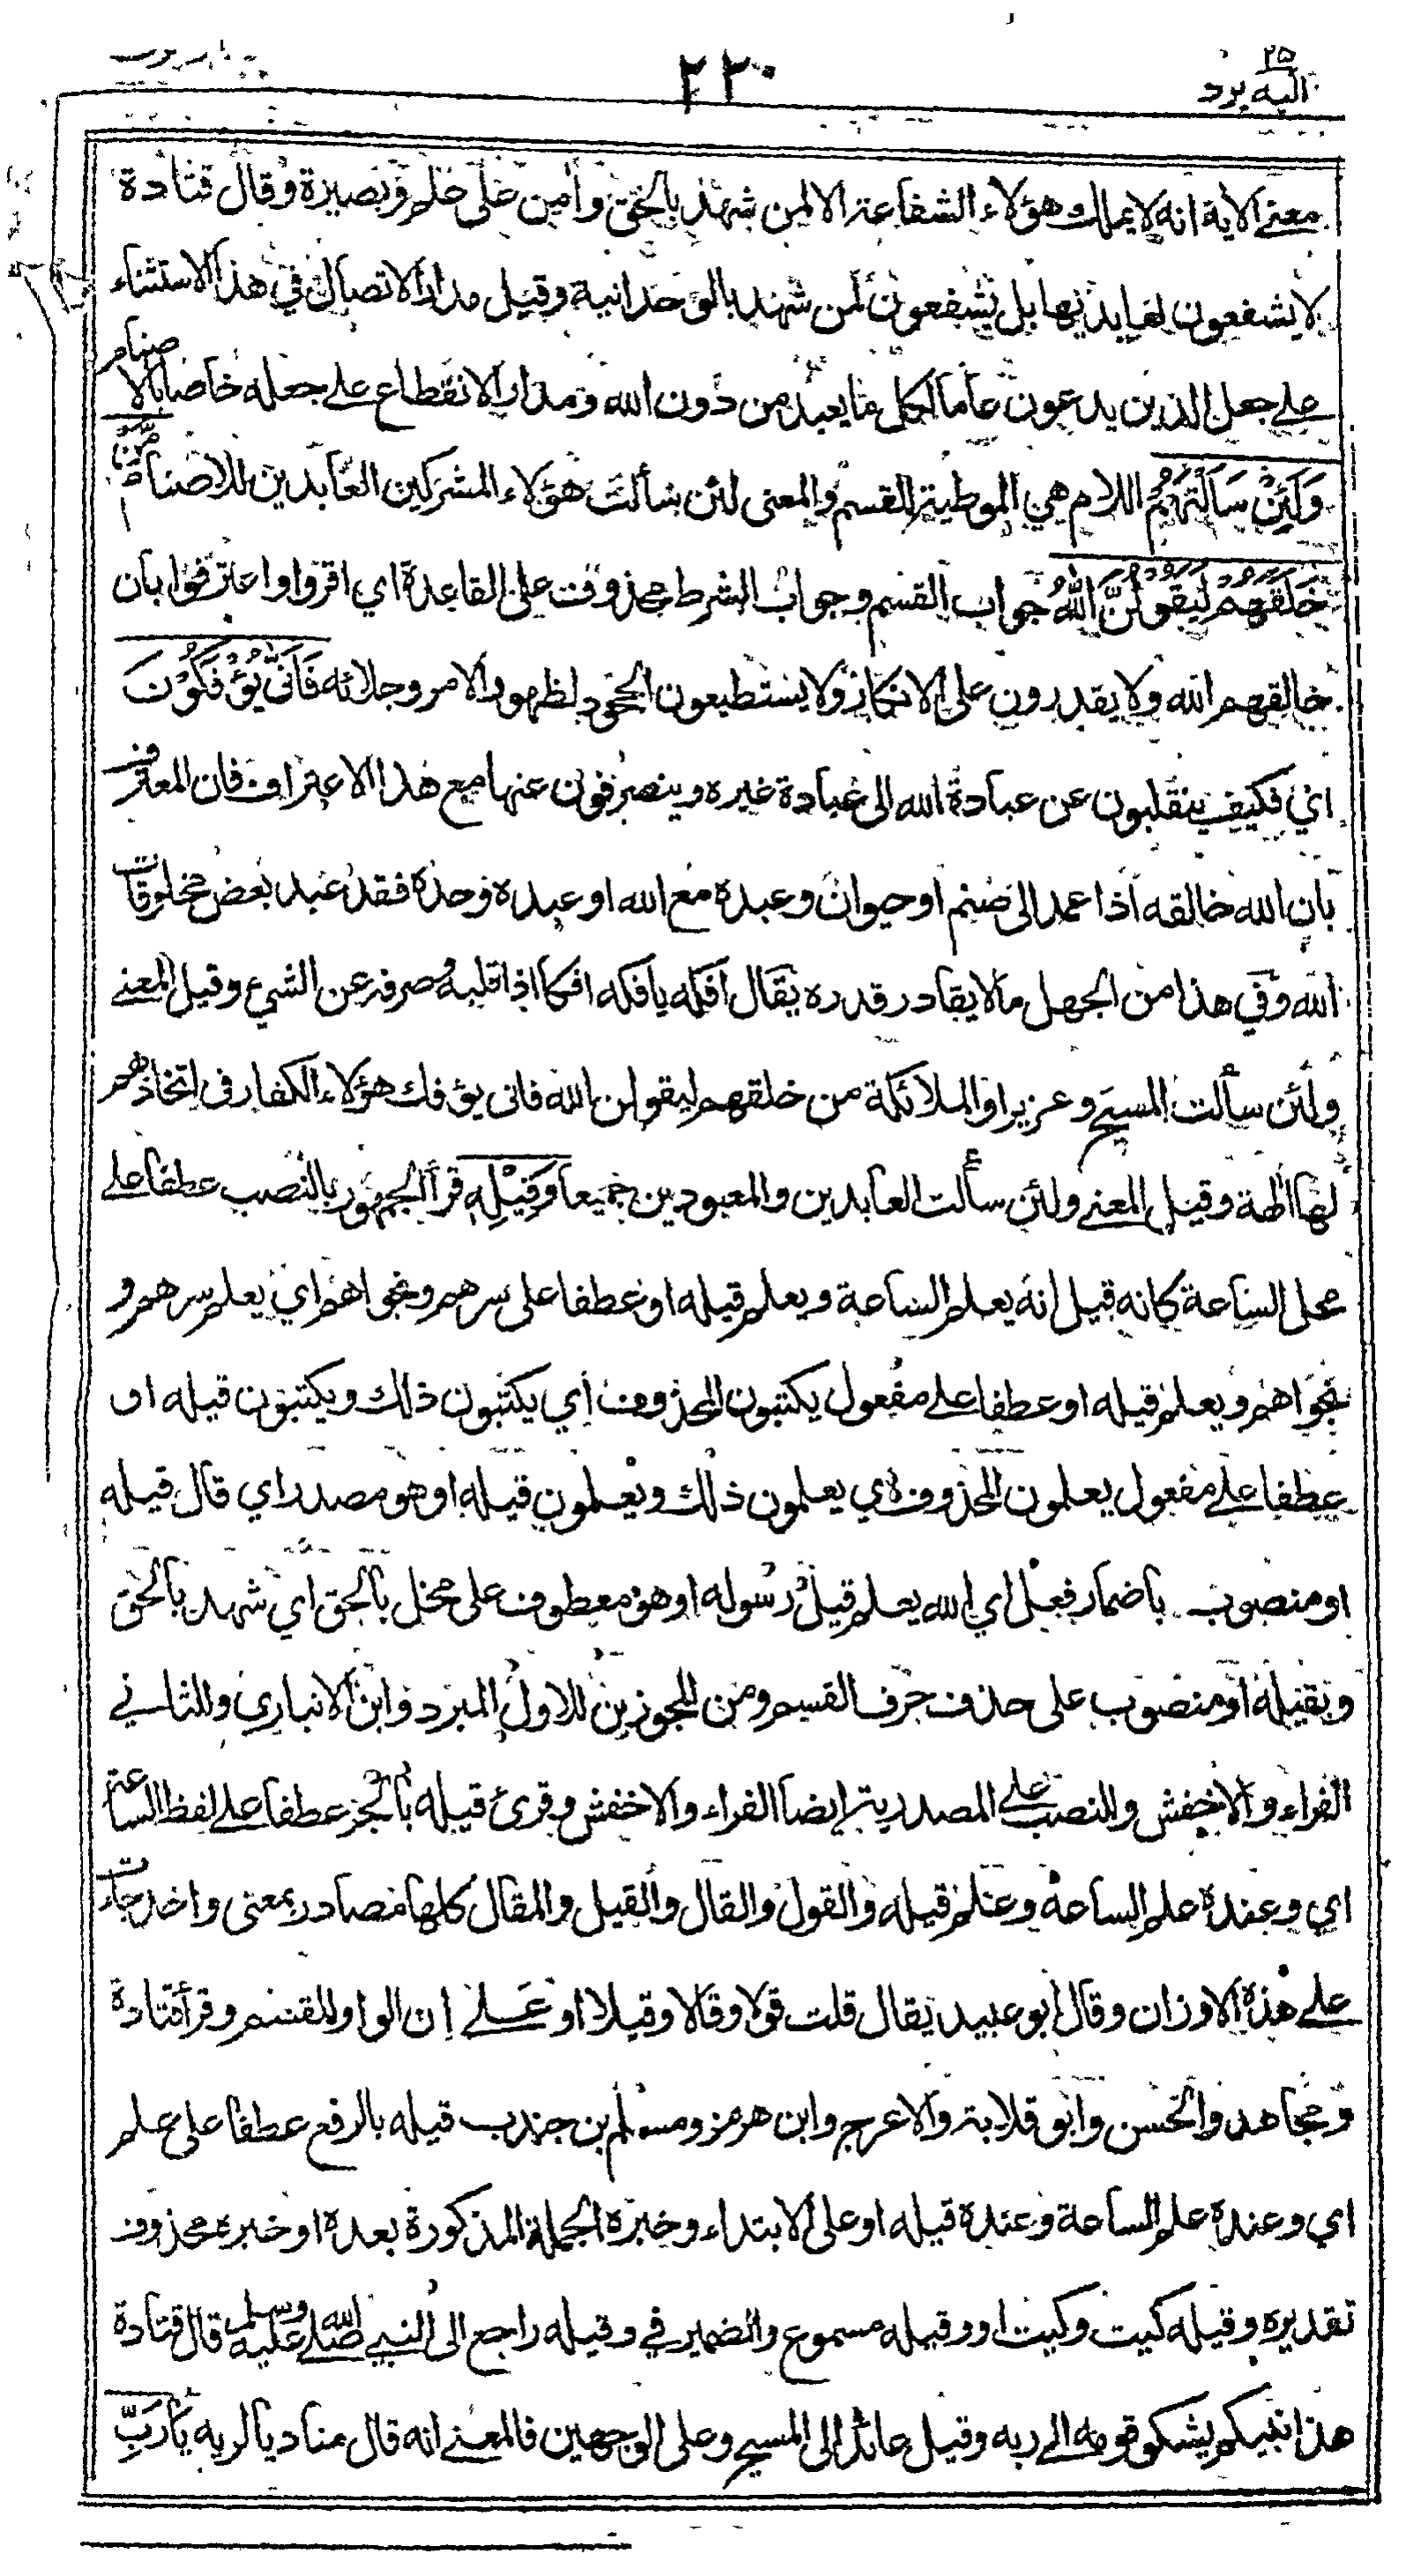 ٢٥
اليه يرد
٢٢٠
معنى الآية انه لا يملك هؤلاء الشفاعة الا لمن شهد بالحق وآمن على علم وبصيرة وقال قتادة
لا يشفعون لعابديها بل يشفعون لمن شهد بالوحدانية وقيل مدار الاتصال في هذا الاستثناء
على جعل الذين يدعون عاما لكل ما يعبد من دون الله ومدار الانقطاع على جعله خاصا بالاصنام
وَلَئِنْ سَأَلْتَهُمْ اللام هي الموطية للقسم والمعنى لئن سألت هؤلاء المشركين العابدين للاصنام مَّنْ
خَلَقَهُمْ لَيَقُولُنَّ اللهُ جواب القسم وجواب الشرط محذوف على القاعدة اي اقروا واعترفوا بان
خالقهم الله ولا يقدرون على الانكار ولا يستطيعون الجحود لظهور الامر وجلائه فَأَنَّى يُؤْفَكُوْنَ
اي فكيف ينقلبون عن عبادة الله الى عبادة غيره وينصرفون عنها مع هذا الاعتراف فان المعترف
بان الله خالقه اذا عمد الى صنم او حيوان وعبده مع الله او عبده وحده فقد عبد بعض مخلوقات
الله وفي هذا من الجهل ما لا يقادر قدره يقال افكه يافكه افكا اذا قلبه وصرفه عن الشيء وقيل المعنى
ولئن سألت المسيح وعزيرا والملائكة من خلقهم ليقولن الله فانى يؤفك هؤلاء الكفار في اتخاذهم
لها آلهة وقيل المعنى ولئن سألت العابدين والمعبودين جميعا وَقِيْلِهِ قرأ الجمهور بالنصب عطفا على
محل الساعة كانه قيل انه يعلم الساعة ويعلم قيله او عطفا على سرهم ونجواهم اي يعلم سرهم و
نجواهم ويعلم قيله او عطفا على مفعول يكتبون المحذوف اي يكتبون ذلك ويكتبون قيله او
عطفا على مفعول يعلمون المحذوف اي يعلمون ذلك ويعلمون قيله او هو مصدر اي قال قيله
او منصوب باضمار فعل اي الله يعلم قيل رسوله او هو معطوف على محل بالحق اي شهد بالحق
وبقيله او منصوب على حذف حرف القسم ومن المجوزين للاول المبرد وابن الانباري وللثاني
الفراء والاخفش وللنصب على المصدرية ايضا الفراء والاخفش وقرئ قيله بالجر عطفا على لفظ الساعة
اي وعنده علم الساعة وعلم قيله والقول والقال والقيل والمقال كلها مصادر بمعنى واحد جاءت
على هذه الاوزان وقال ابو عبيد يقال قلت قولا وقالا وقيلا او على ان الواو للقسم وقرأ قتادة
ومجاهد والحسن وابو قلابة والاعرج وابن هرمز ومسلم بن جندب قيله بالرفع عطفا على علم
اي وعنده علم الساعة وعنده قيله او على الابتداء وخبره الجملة المذكورة بعده او خبره محذوف
تقديره وقيله كيت وكيت او وقيله مسموع والضمير في وقيله راجع الى النبي صلى الله عليه وسلم قال قتادة
هذا نبيكم يشكو قومه الى ربه وقيل عائد الى المسيح وعلى الوجهين فالمعنى انه قال مناديا لربه يَارَبِّ